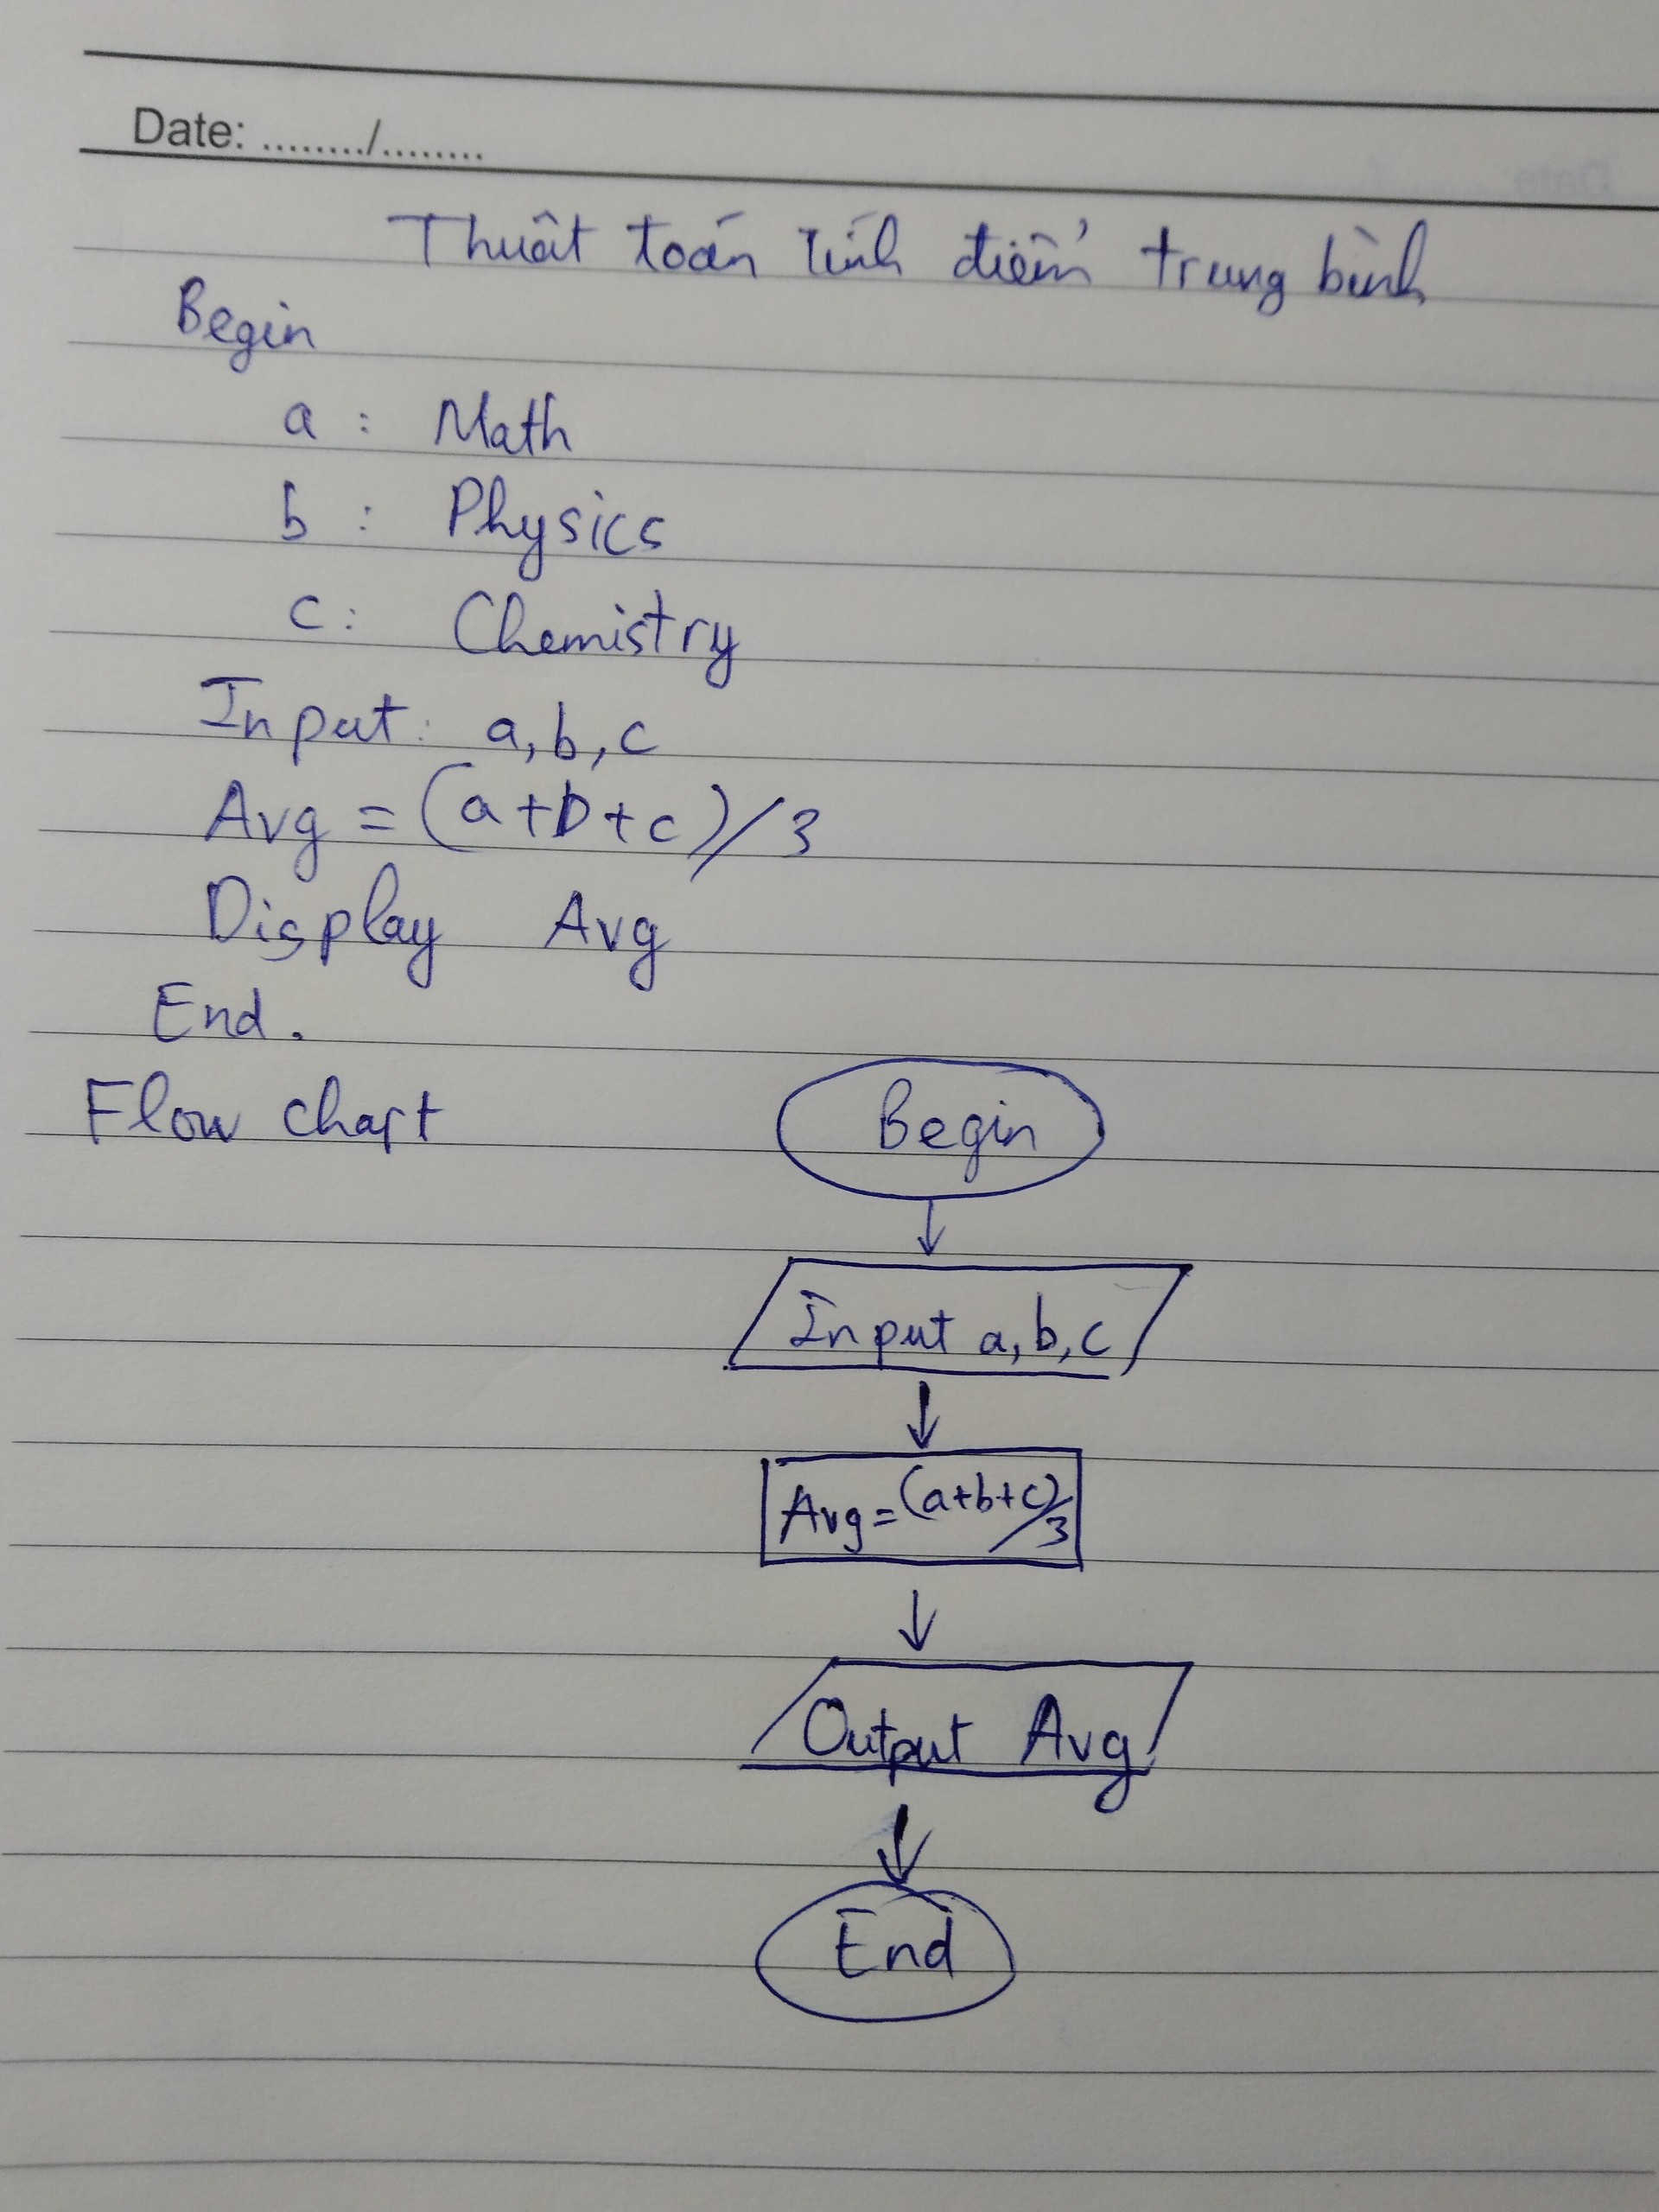 Date: ......../........
Thuật toán tính điểm trung bình
Begin
a : Math
b : Physics
c : Chemistry
Input : a, b, c
Avg = (a+b+c)/3
Display Avg
End.
Flow chart
Begin
Input a, b, c
Avg = (a+b+c)/3
Output Avg
End